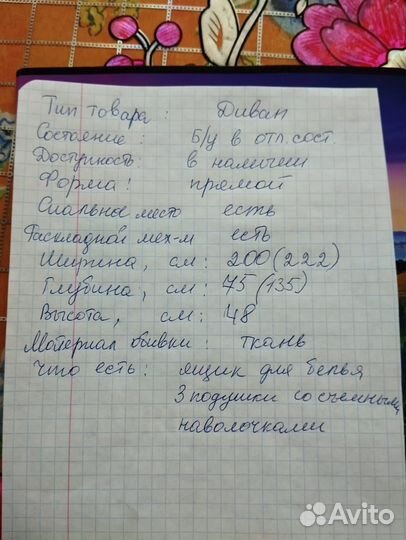 Тип товара : Диван
Состояние : б/у в отл. сост.
Доступность: в наличии
Форма: прямой
Спальное место есть
Раскладной мех-м есть
Ширина, см: 200(222)
Глубина, см: 75(135)
Высота, см: 48
Материал обивки: ткань
Что есть: ящик для белья
3 подушки со съемными
наволочками
Avito